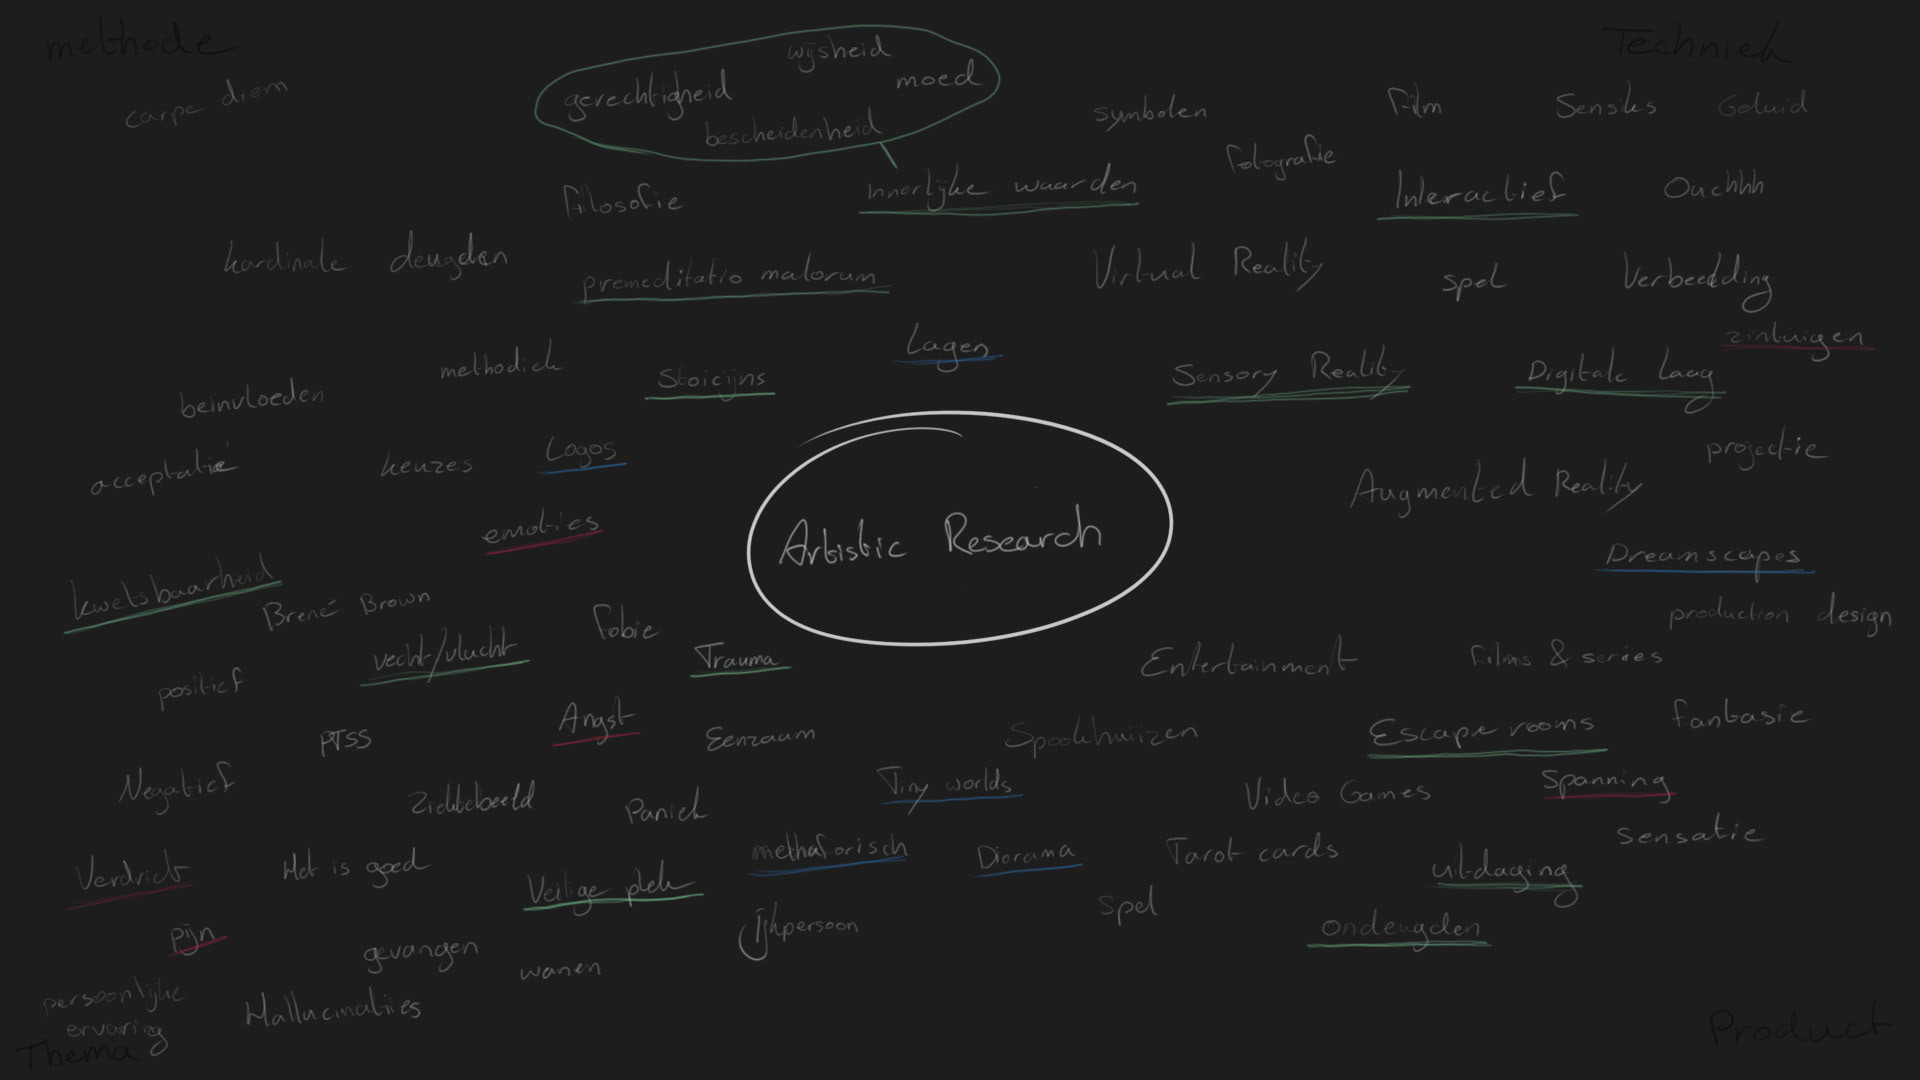 methode
Techniek
carpe diem
wijsheid
gerechtigheid
moed
bescheidenheid
symbolen
Film
Sensiks
Geluid
filosofie
Innerlijke waarden
fotografie
Interactief
Ouchhh
kardinale deugden
premeditatio malorum
Virtual Reality
spel
Verbeelding
zintuigen
methodiek
Stoicijns
Lagen
Sensory Reality
Digitale Laag
beinvloeden
acceptatie
keuzes
Logos
projectie
Augmented Reality
emoties
Artistic Research
Dreamscapes
kwetsbaarheid
Brené Brown
fobie
production design
vecht/vlucht
Trauma
Entertainment
Films & series
positief
PTSS
Angst
Eenzaam
Spookhuizen
Escape rooms
fantasie
Negatief
Ziektebeeld
Paniek
Tiny worlds
Video Games
Spanning
Sensatie
Verdriet
Het is goed
Veilige plek
methaforisch
Diorama
Tarot cards
uitdaging
pijn
gevangen
wanen
ijkpersoon
spel
ondeugden
persoonlijke
ervaring
Hallucinaties
Thema
Product